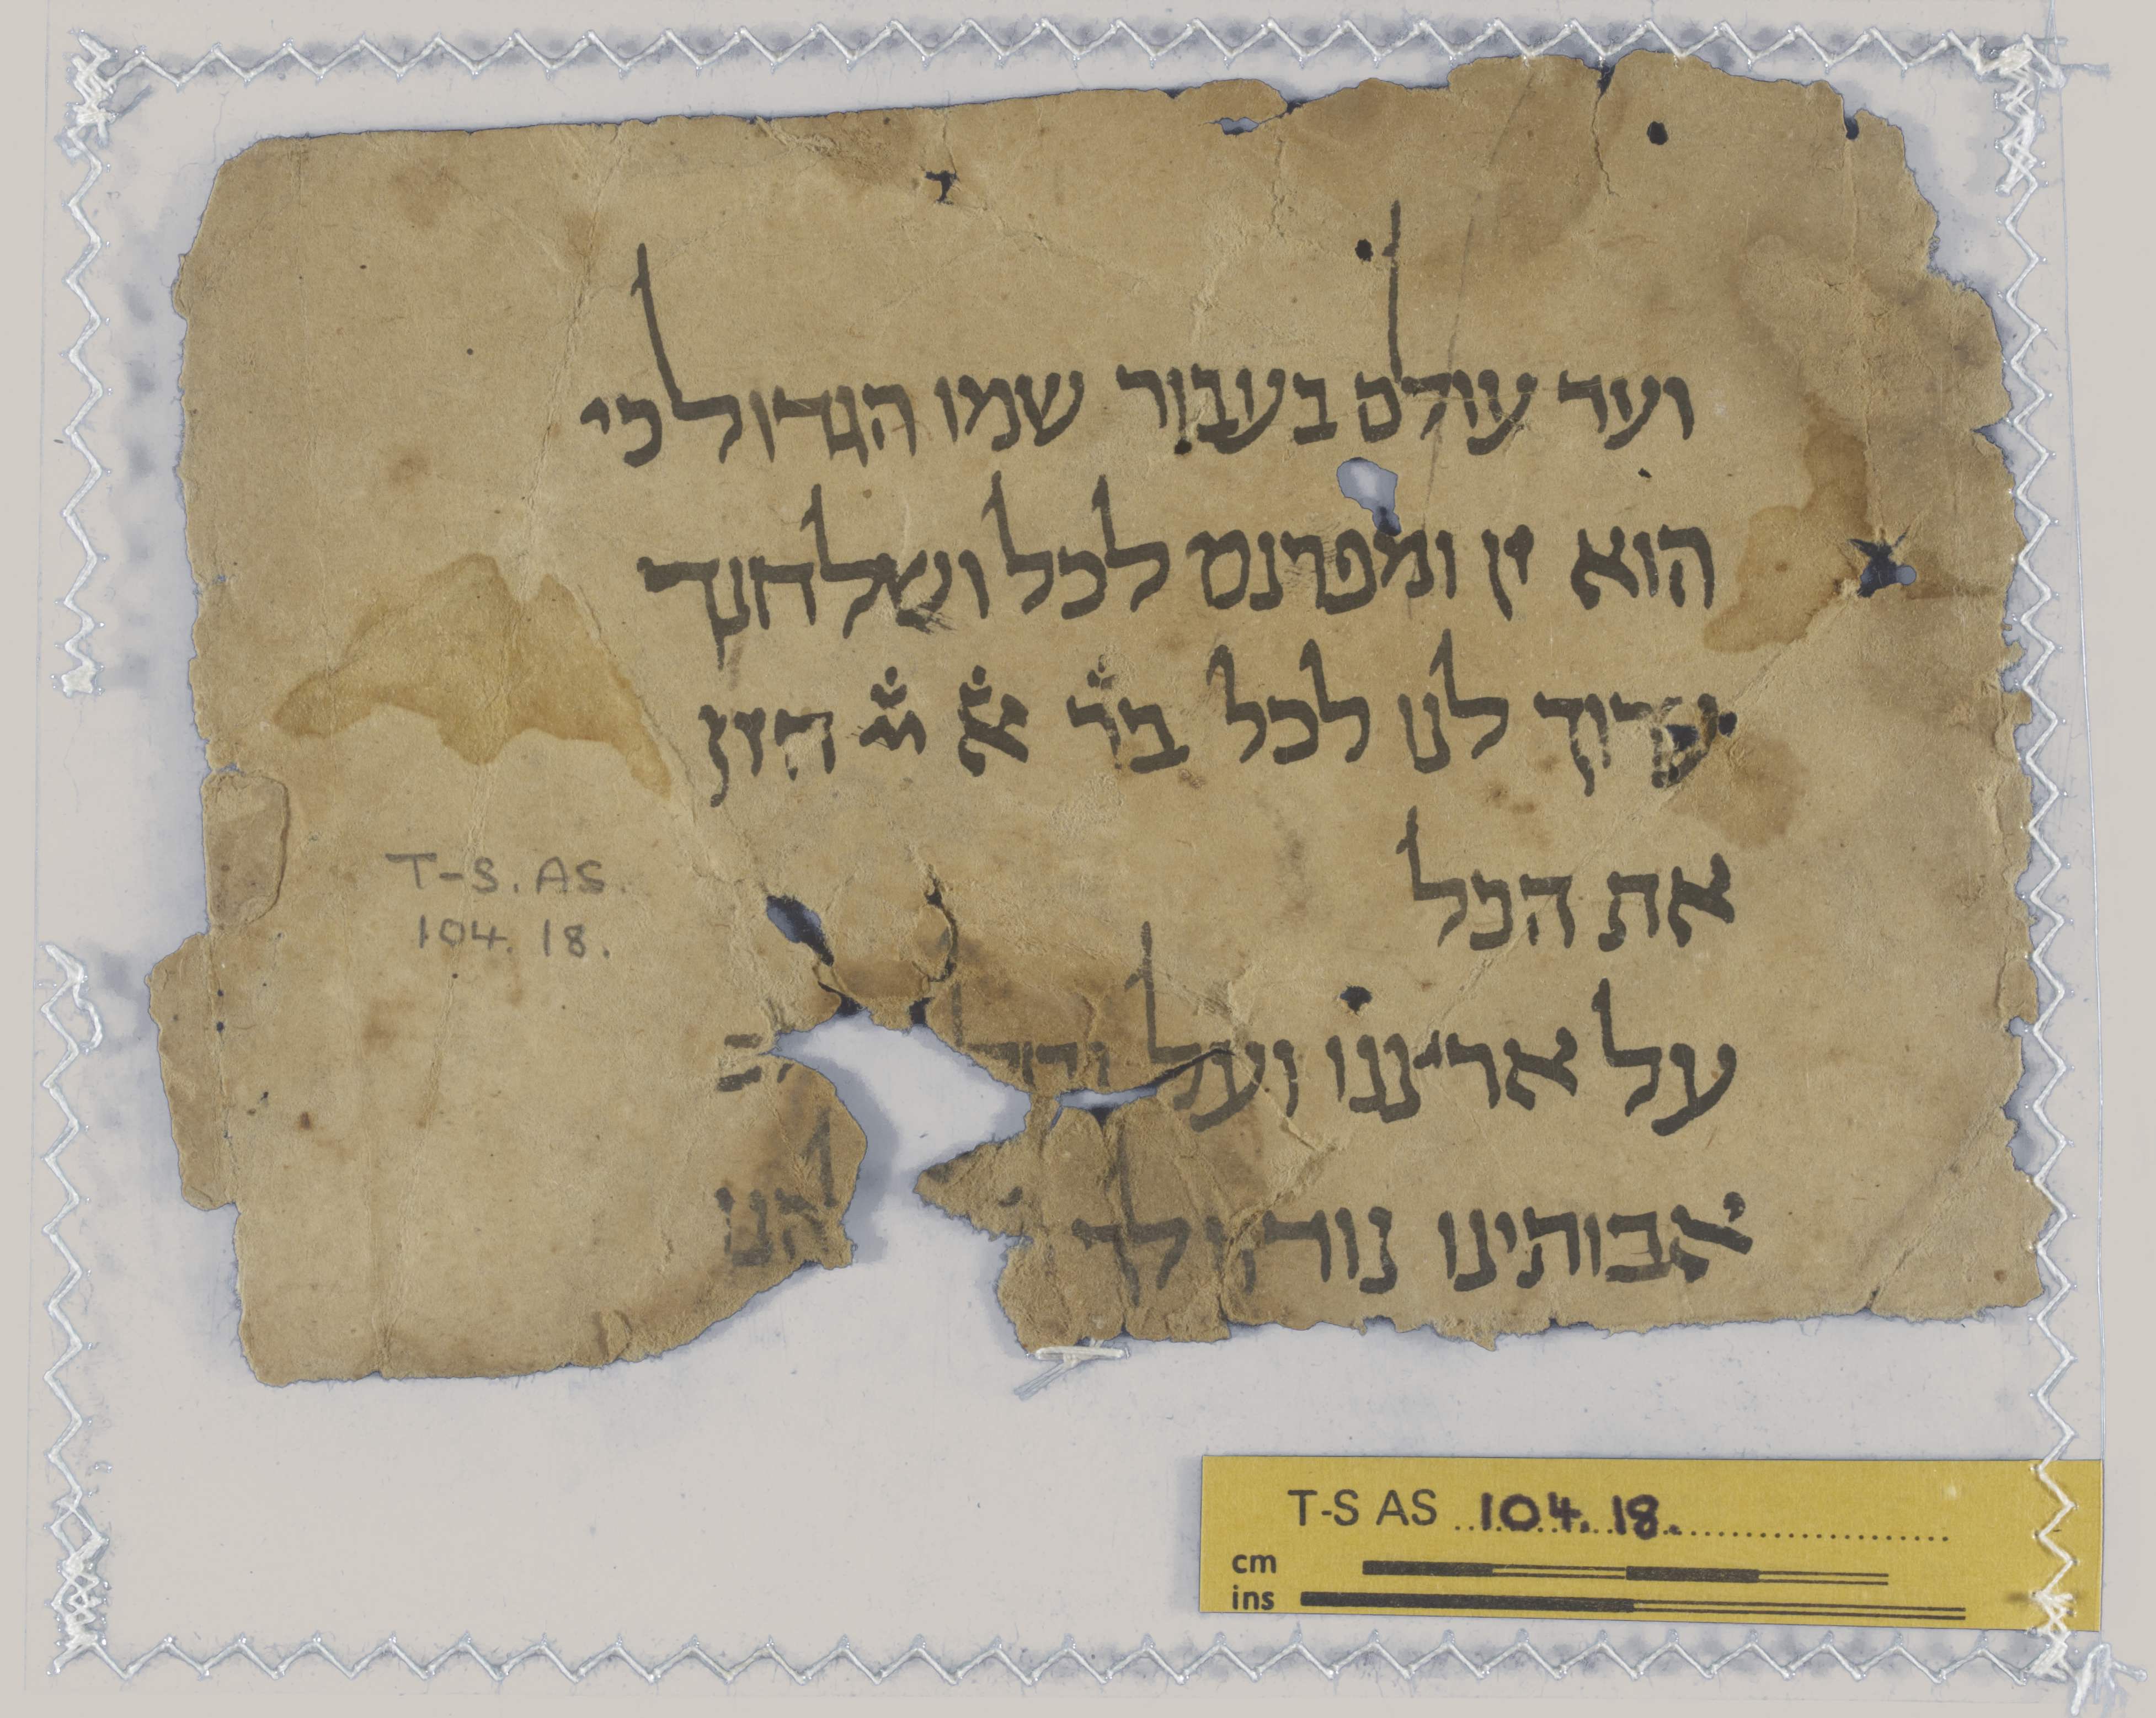 ועד עולם בעבור שמו הגדול כי
הוא זן ומפרנס לכל ושלחנך
ערוך לנו לכל בר א יי הזן
את הכל
על ארצנו ועל
אבותינו נודך לך
T-S. AS.
104. 18.
T-S AS 104. 18.
cm
ins